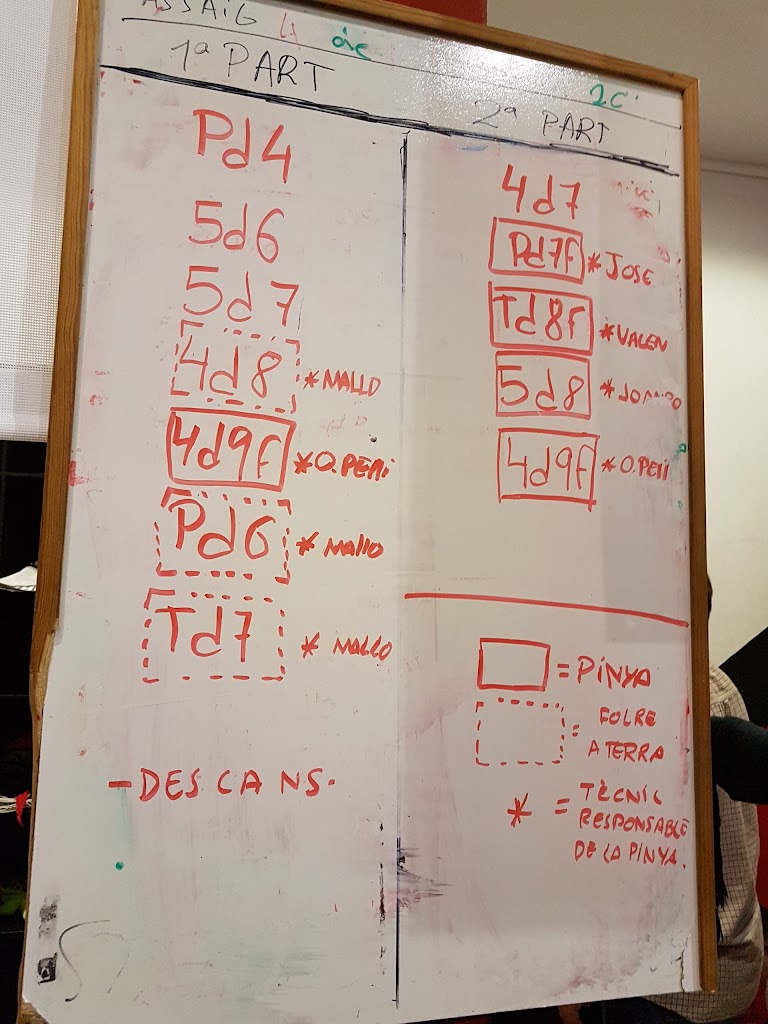 ASSAIG
1ª PART
Pd4
5d6
5d7
4d8 * MALLO
4d9f * O. PEMi
Pd6 * MALLO
Td7 * MALLO
- DESCANS.
2ª PART
4d7
Pd7f * JOSE
Td8f * VALEN
5d8
4d9f
= PINYA
= FOLRE
A TERRA
* = TÈCNIC
RESPONSABLE
DE LA PINYA.